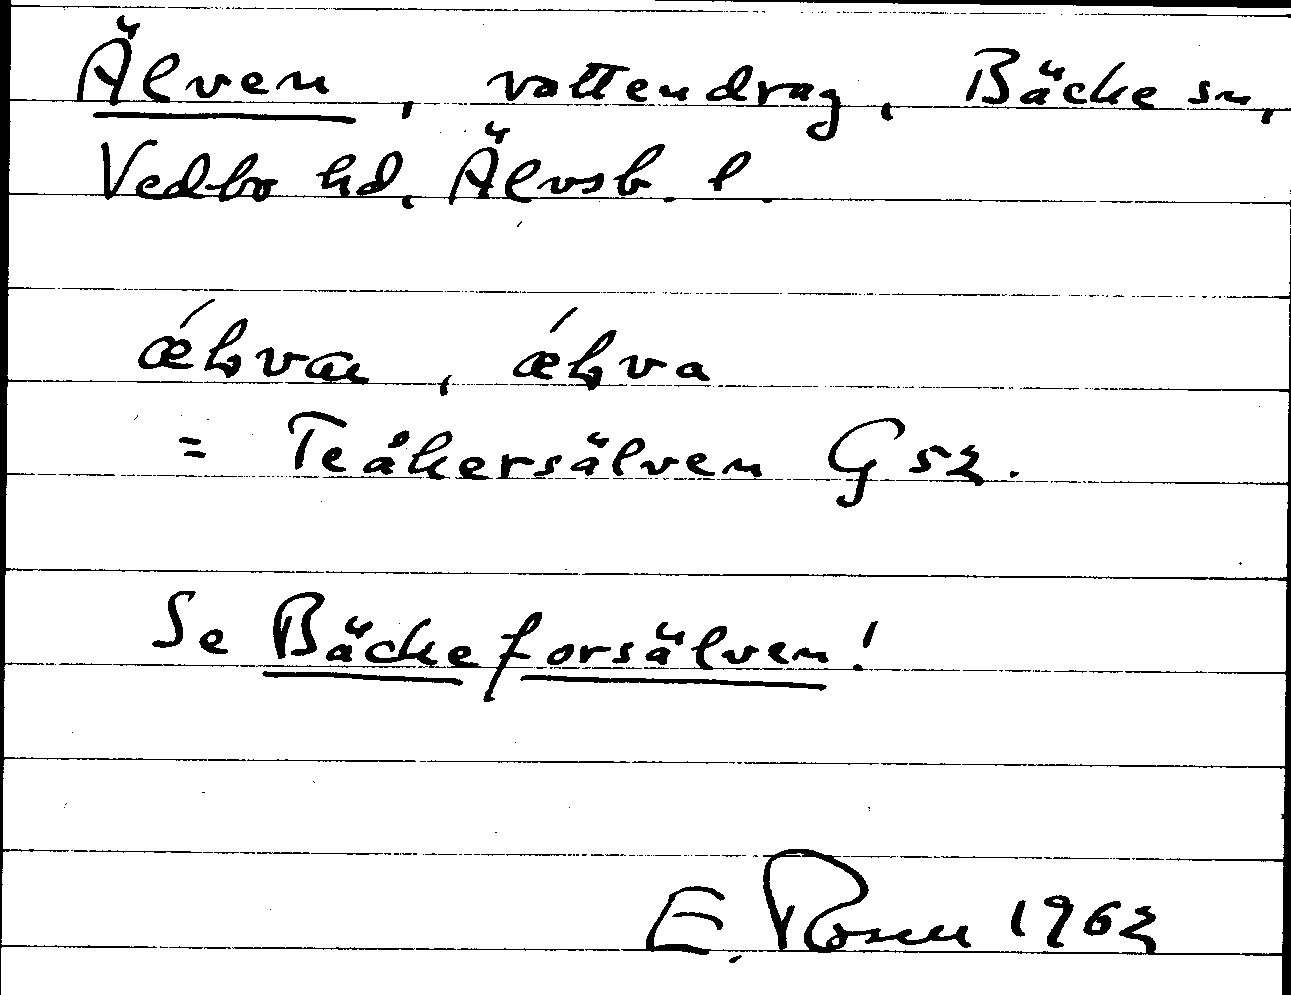 Älven, vattendrag, Bäcke sn,
Vedbo hd, Älvsb. l.
ǽƚvan, ǽƚva
= Teåkersälven G52.
Se Bäckeforsälven!
E. Rosen 1962